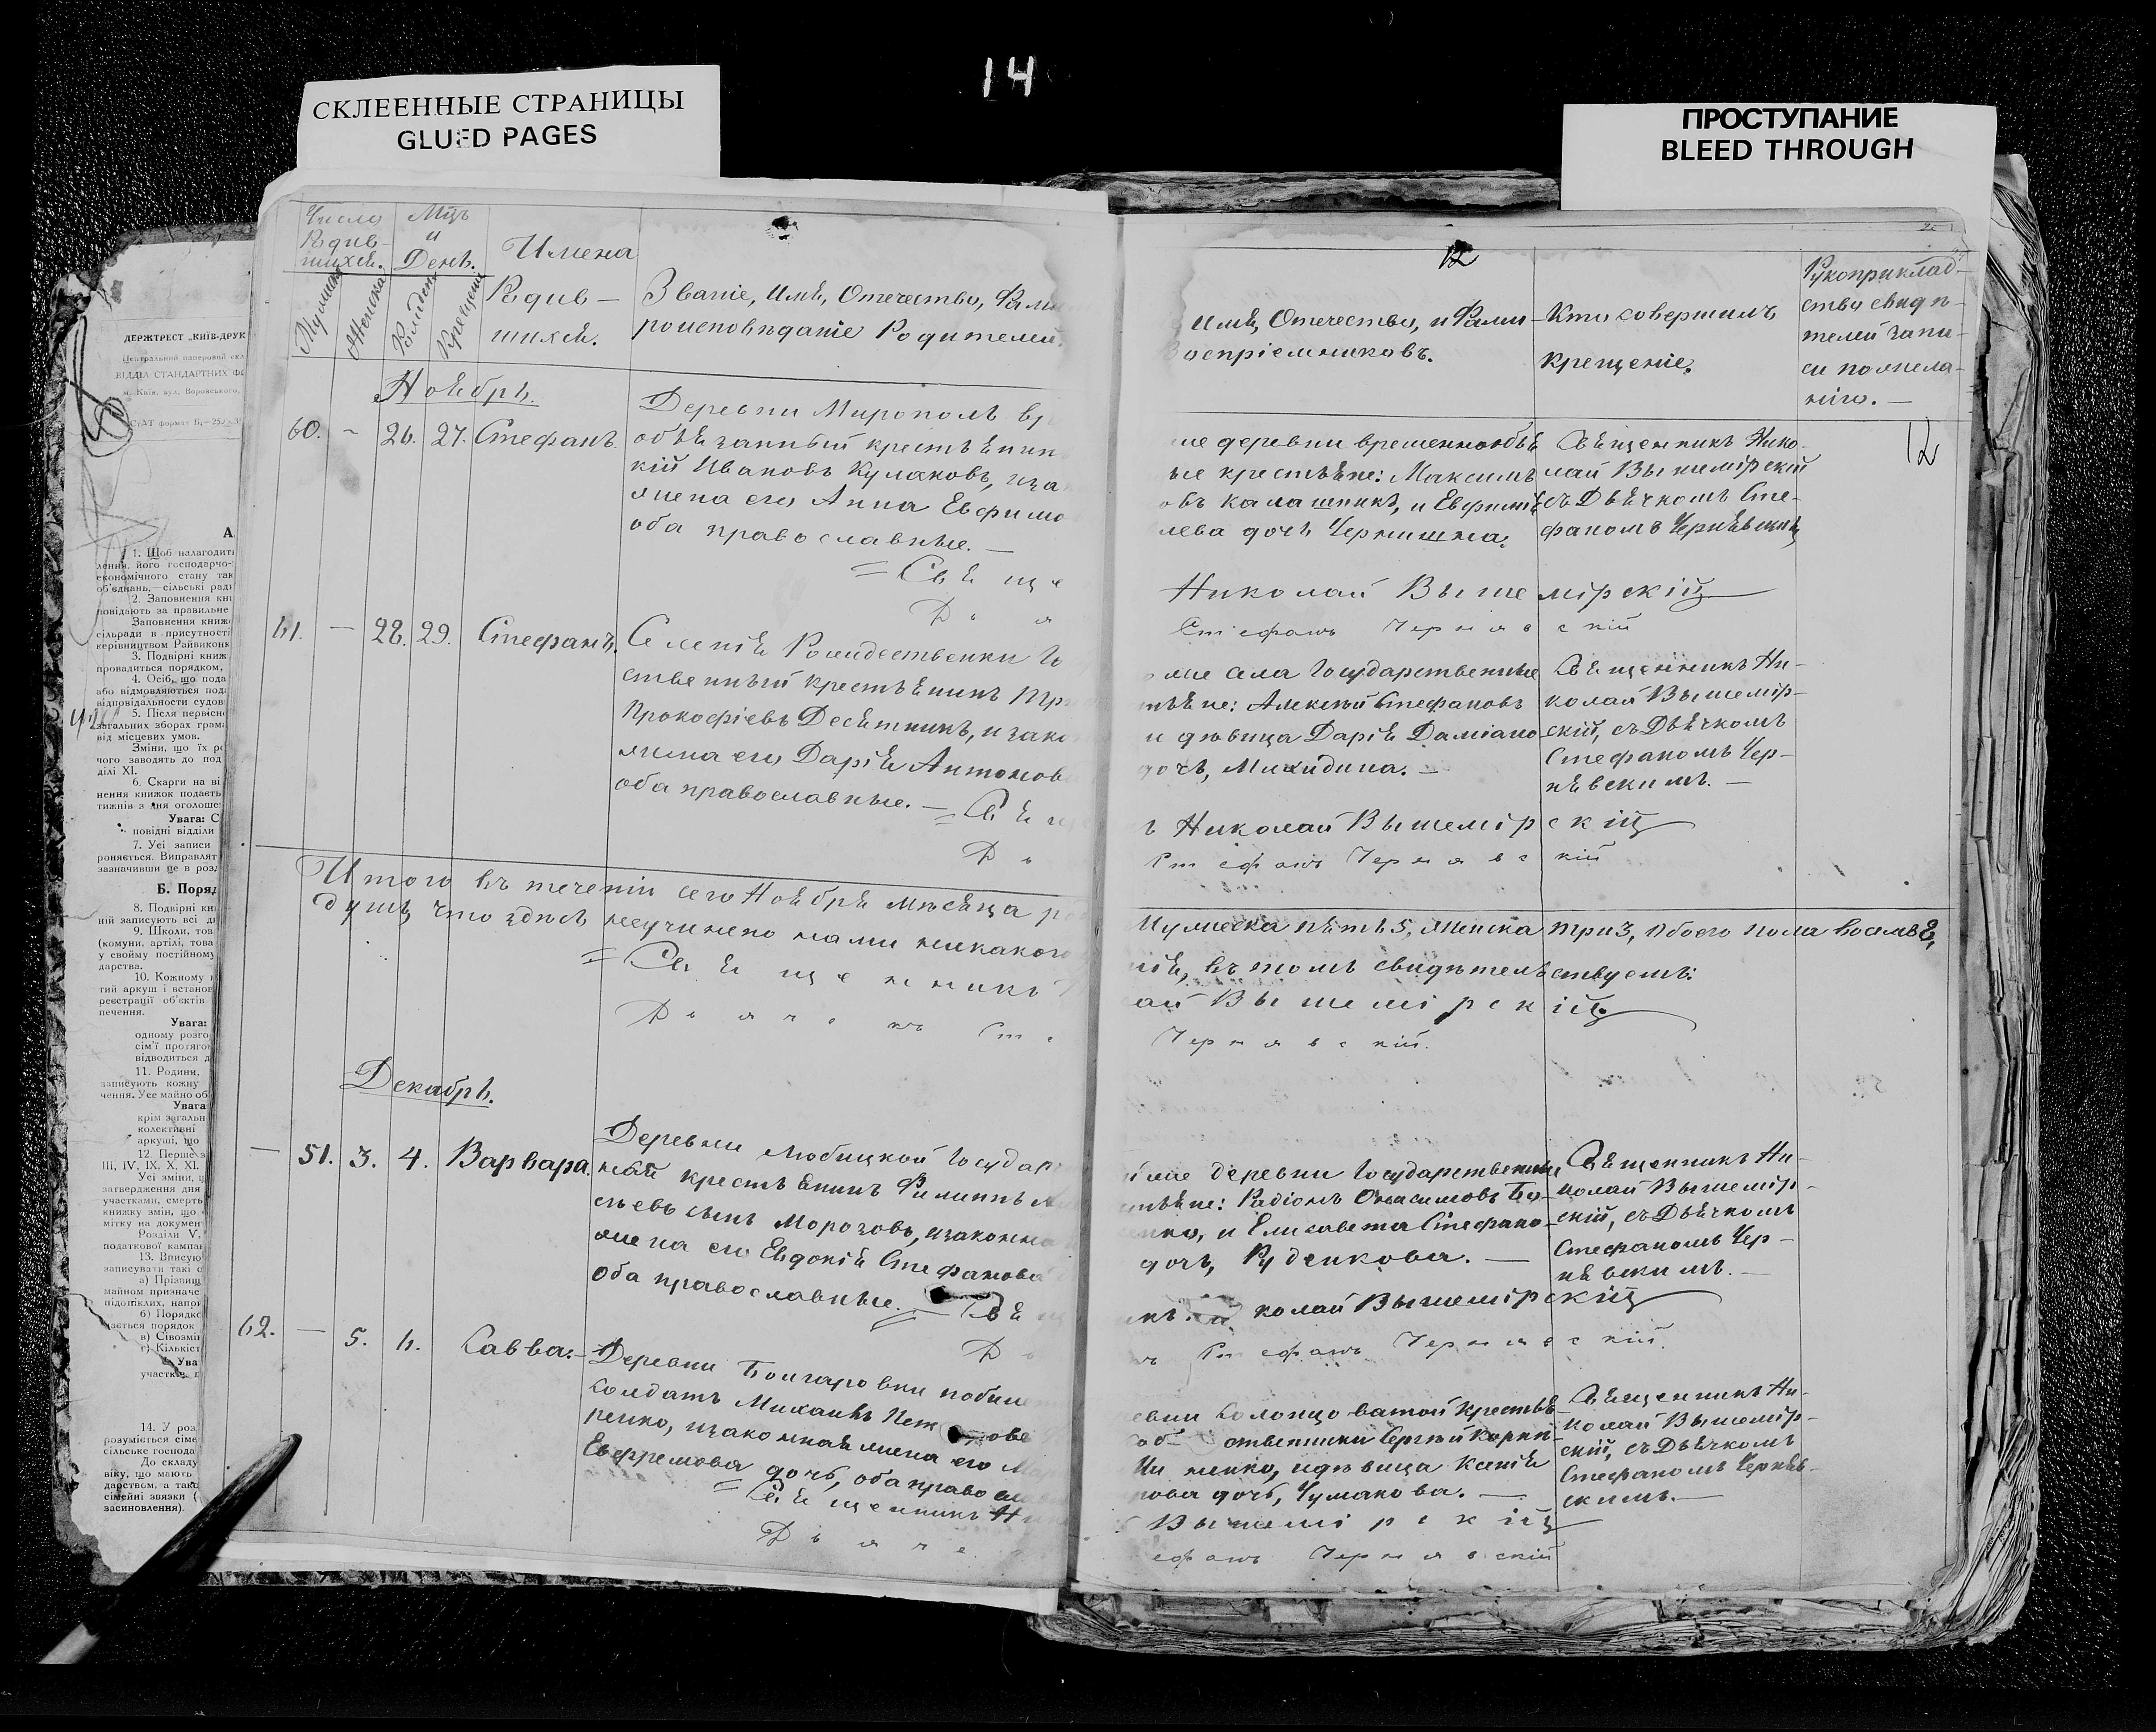 14
СКЛЕЕННЫЕ СТРАНИЦЫ
GLUED PAGES
ПРОСТУПАНИЕ
BLEED THROUGH
ДЕРЖТРЕСТ „КИЇВ-ДРУК
ВІДДІЛ СТАНДАРТНИХ
м. Київ, вул. Воровського,
1. Щоб налагодити
лення, його господарчо-
економічного стану так
об'єднань,— сільські ради
2. Заповнення кни
повідають за правильне
Заповнення книж
сільради в присутності
керівництвом Райвиконк
3. Подвірні книж
провадиться порядком,
4. Осіб, що пода
або відмовляються пода
відповідальности судов
5. Після первісно
загальних зборах грам
від місцевих умов.
Зміни, що їх ро
чого заводять до под
ділі XI.
6. Скарги на ві
нення книжок подаєть
тижнів з дня оголоше
Увага: С
повідні відділи
7. Усі записи
роняється. Виправлят
зазначивши це в розд
Б. Поряд
8. Подвірні кн
ній записують всі д
9. Школи, тов
(комуни, артілі, това
у свойму постійному
дарства.
10. Кожному г
тий аркуш і встанов
реєстрації об'єктів
печення.
Увага:
одному розго
сім'ї протягом
відводиться д
11. Родини,
записують кожну
чення. Усе майно об
Увага
крім загальн
колективні
аркуші, що
12. Перше з
III, IV, IX, X, XI.
Усі зміни, ц
затвердження дня
участками, смерть
книжку змін, що
мітку на докумен
Розділи V,
податкової кампан
13. Вписую
записувати такі с
а) Прізвищ
майном призначе
підопіклих, напри
б) Порядко
в) Сівозмін
г) Кількіст
Ува
участків,
14. У роз
розуміється сіме
сільське господа
До складу
віку, що мають
дарством, а тако
сімейні звязки (
засиновлення).
Число Родив-шихся.
Мцъ и День.
Имена Родив-шихся.
Мужска
Женска
Рожден
Крещен
Званіе, Имя, Отечество, Фами
роисповѣданіе Родителей.
Ноябрь.
60. – 26. 27. Стефанъ.
Деревни Мирополь вр
обязанный крестьянин
кій Ивановъ Кулаковъ, иза
жена его Анна Ефимо
оба православные. —
= Свяще
Дья
61. — 28. 29. Стефанъ.
Селенія Рождественки Го
ственный крестьянинъ
Прокофіевъ Десятникъ, и зако
жена его Дарія Антонов
оба православные. —
= Свяще
Дь
Итого въ теченіи сего Ноября мѣсяца ро
душъ, что здѣсь неучинено нами никакого
= Священникъ
Дьячокъ Сте
Декабрь.
— 51. 3. 4. Варвара.
Деревни Любицкой Государ
ный крестьянинъ Филиппъ
сѣевъ сынъ Морозовъ, изаконна
жена его Евдокія Стефанова
оба православные. —
= Свящ
Дь
62. — 5. 6. Савва. –
Деревни Бонгаровки
солдатъ Михаилъ
ренко, изаконная жена его
Ефремова дочь, оба правосл
= Священникъ Ни
Дьяче
12
Имя, Отечество, и Фами-
Воспріемниковъ.
Кто совершалъ
крещеніе.
Рукоприклад-
ство свидѣ-
телей запи-
си пожела-
нію. —
12
же деревни временнообя
ые крестьяне: Максимъ
овъ Калашникъ, и Евфимія
лева дочь Чернишка.
Священникъ Нико-
лай Вышемірскій
съ Дьячкомъ Сте-
фаномъ Чернявскимъ
Николай Вышемірскій
Стефанъ Чернявскій
оже села Государственные
тьяне: Алексѣй Стефановъ
и дѣвица Дарія Даміано
дочь,
Священникъ Ни-
колай Вышемір-
скій, съ Дьячкомъ
Стефаномъ Чер-
нявскимъ. —
ъ Николай Вышемірскій
Стефанъ Чернявскій
Мужеска пять 5, женска три 3, обоего пола восемь 8,
нія, въ томъ свидѣтельствуемъ:
ай Вышемірскій
Чернявскій.
же деревни Государственны
тьяне: Радіонъ Онисимовъ Бо-
енко, и Елисавета Стефано-
дочь, Руденкова. —
Священникъ Ни-
колай Вышемір-
скій, съ Дьячкомъ
Стефаномъ Чер-
нявскимъ. —
икъ Николай Вышемірскій
ъ Стефанъ Чернявскій.
евни Солонцоватой крестья
соб ственники Сергѣй
ненко, идѣвица Ксенія
нова дочь, Чумакова. —
Священникъ Ни-
колай Вышемір-
скій, съ Дьячкомъ
Стефаномъ Черняв-
скимъ. —
Вышемірскій
ефанъ Чернявскій